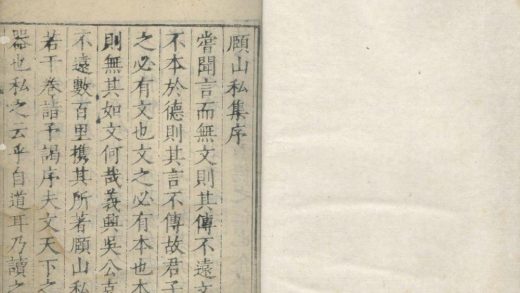 頤山私集序
嘗聞言而無文則其傳不遠文
不本於德則其言不傳故君子
之必有文也文之必有本也本
則無其如文何哉義興吳公克
不遠數百里携其所著頤山私
若干卷詣予謁序夫文天下之
器也私之云乎自道耳乃讀之